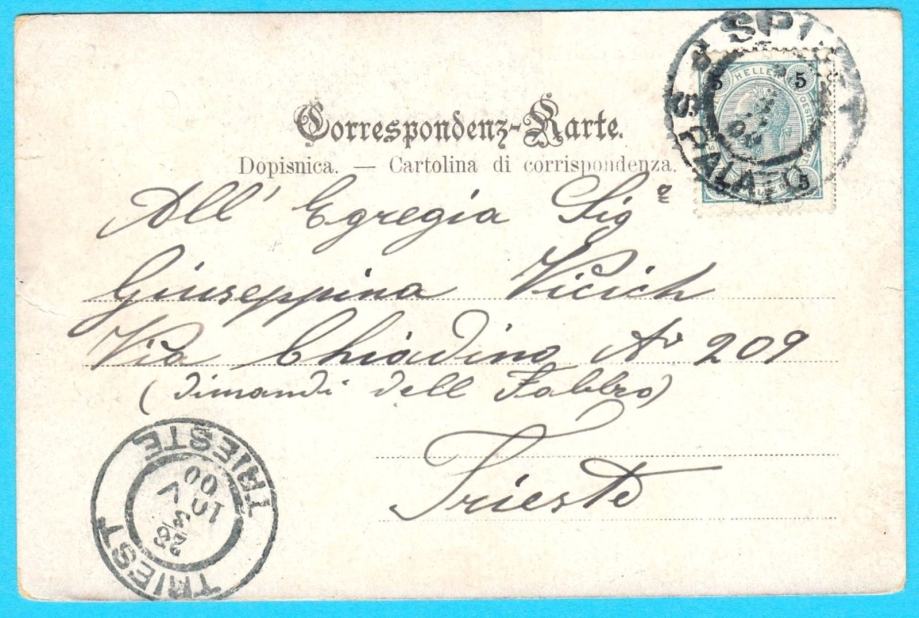 SPLJET
SPALATO
5 HELLER 5
5
Correspondenz-Karte.
Dopisnica. — Cartolina di corrispondenza.
All' Egregia Sigᵃ
Giuseppina Vicich
Via Chiadino Nº 209
(dimandi dell Fabbro)
Trieste
TRIEST TRIESTE
00